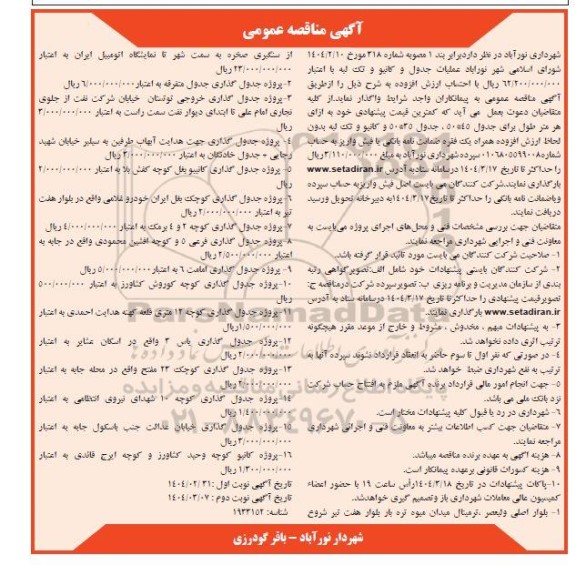 آگهی مناقصه عمومی
شهرداری نورآباد در نظر دارد برابر بند ۱ مصوبه شماره ۳۱۸ مورخ ۱۴۰۴/۲/۱۰
شورای اسلامی شهر نورآباد عملیات جدول و کانیو و تک لبه با اعتبار
۶۲/۲۰۰/۰۰۰/۰۰۰ ریال با احتساب ارزش افزوده به شرح ذیل را ازطریق
آگهی مناقصه عمومی به پیمانکاران واجد شرایط واگذار نماید.از کلیه
متقاضیان دعوت بعمل می آید که کمترین قیمت پیشنهادی خود به ازای
هر متر طول برای جدول ۵۰*۴۵ ، جدول ۳۵*۵۰ و کانیو و تک لبه بدون
لحاظ ارزش افزوده همراه یک فقره ضمانت نامه بانکی یا فیش واریز به حساب
سپرده شهرداری نورآباد به مبلغ ۳/۱۱۰/۰۰۰/۰۰۰ ریال
را حداکثر تا تاریخ ۱۴۰۴/۳/۱۷ درسامانه ستاد به آدرس www.setadiran.ir
بارگذاری نمایند.شرکت کنندگان می بایست اصل فیش واریز به حساب سپرده
ویاضمانت نامه بانکی را حداکثر تا تاریخ ۱۴۰۴/۳/۱۷ به دبیرخانه تحویل ورسید
دریافت نمایند.
متقاضیان جهت بررسی مشخصات فنی و محل‌های اجرای پروژه می‌بایست به
معاونت فنی و اجرایی شهرداری مراجعه نمایند.
۱- صلاحیت شرکت کنندگان می بایست مورد تائید قرار گرفته باشد.
۲- شرکت کنندگان بایستی پیشنهادات خود شامل الف:تصویرگواهی رتبه
بندی از سازمان مدیریت و برنامه ریزی ب: تصویرسپرده شرکت درمناقصه ج:
تصویرقیمت پیشنهادی را حداکثرتا تاریخ ۱۴۰۴/۳/۱۷ درسامانه ستاد به آدرس
www.setadiran.ir بارگذاری نمایند.
۳- به پیشنهادات مبهم ، مخدوش ، مشروط و خارج از موعد مقرر هیچگونه
ترتیب اثری داده نخواهد شد.
۴- در صورتی که نفر اول تا سوم حاضر به انعقاد قرارداد نشوند سپرده آنها به
ترتیب به نفع شهرداری ضبط خواهد شد.
۵- جهت انجام امور مالی قرارداد برنده آگهی ملزم به افتتاح حساب شرکت
نزد بانک ملی می باشد.
۶- شهرداری در رد یا قبول کلیه پیشنهادات مختار است.
۷- متقاضیان جهت کسب اطلاعات بیشتر به معاونت فنی و اجرائی شهرداری
مراجعه نمایند.
۸- هزینه آگهی به عهده برنده مناقصه میباشد.
۹- هزینه کسورات قانونی برعهده پیمانکار است.
۱۰-پاکات پیشنهادات در تاریخ ۱۴۰۴/۳/۱۸ راس ساعت ۱۹ با حضور اعضاء
کمیسیون عالی معاملات شهرداری باز وتصمیم گیری خواهدشد.
۱- بلوار اصلی ولیعصر .ترمینال میدان میوه تره بار بلوار هفت تیر شروع
از سنگبری صخره به سمت شهر تا نمایشگاه اتومبیل ایران به اعتبار
۲۳/۰۰۰/۰۰۰/۰۰۰ ریال
۲-پروژه جدول گذاری جدول متفرقه به اعتبار ۶/۰۰۰/۰۰۰/۰۰۰ ریال
۳-پروژه جدول گذاری خروجی توتستان خیابان شرکت نفت از جلوی
نجاری امام علی تا ابتدای دیوار نفت سمت راست به اعتبار ۳/۰۰۰/۰۰۰/۰۰۰
ریال
۴- پروژه جدول گذاری جهت هدایت آبهاب طرفین به سیلبر خیابان شهید
رجایی + جدول خادتکان به اعتبار ۳/۰۰۰/۰۰۰/۰۰۰ ریال
۵- پروژه جدول گذاری کانیو بغل کوچه کفش بلا به اعتبار ۲/۰۰۰/۰۰۰/۰۰۰
ریال
۶- پروژه جدول گذاری کوچک بغل ایران خودرو غلامی واقع در بلوار هفت
تیر به اعتبار ۲/۰۰۰/۰۰۰/۰۰۰ ریال
۷- پروژه جدول گذاری کوچه ۲ و ۴ برمک به اعتبار ۴/۰۰۰/۰۰۰/۰۰۰ ریال
۸- پروژه جدول گذاری فرعی ۵ و کوچه افشین محمودی واقع در جابه به
اعتبار ۲/۵۰۰/۰۰۰/۰۰۰ ریال
۹- پروژه جدول گذاری امامت ۶ به اعتبار ۵/۰۰۰/۰۰۰/۰۰۰ ریال
۱۰- پروژه جدول گذاری کوچه کوروش کشاورز به اعتبار ۵۰۰/۰۰۰/۰۰۰
ریال
۱۱- پروژه جدول گذاری کوچه ۱۲ متری قلعه کهنه هدایت احمدی به اعتبار
۱/۵۰۰/۰۰۰/۰۰۰ ریال
۱۲-پروژه جدول گذاری یاس ۳ واقع در اسکان عشایر به اعتبار
۲/۰۰۰/۰۰۰/۰۰۰ ریال
۱۳- پروژه جدول گذاری کوچک ۲۳ مفتح واقع در محله جابه به اعتبار
۲/۰۰۰/۰۰۰/۰۰۰ ریال
۱۴- پروژه جدول گذاری کوچه ۱۰ شهدای نیروی انتظامی به اعتبار
۱/۴۰۰/۰۰۰/۰۰۰ ریال
۱۵-پروژه جدول گذاری خیابان عدالت جنب باسکول جابه به اعتبار
۳/۰۰۰/۰۰۰/۰۰۰ ریال
۱۶-پروژه کانیو کوچه وحید کشاورز و کوچه ایرج قائدی به اعتبار
۱/۳۰۰/۰۰۰/۰۰۰ ریال
تاریخ آگهی نوبت اول :۱۴۰۴/۰۲/۳۱
تاریخ آگهی نوبت دوم : ۱۴۰۴/۰۳/۰۷
شناسه: ۱۹۳۳۱۵۲
شهردار نورآباد – باقر گودرزی
ParsNamadData